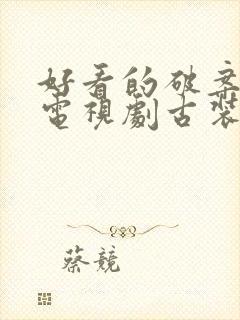 好看的破案
電視劇古裝
蔡競